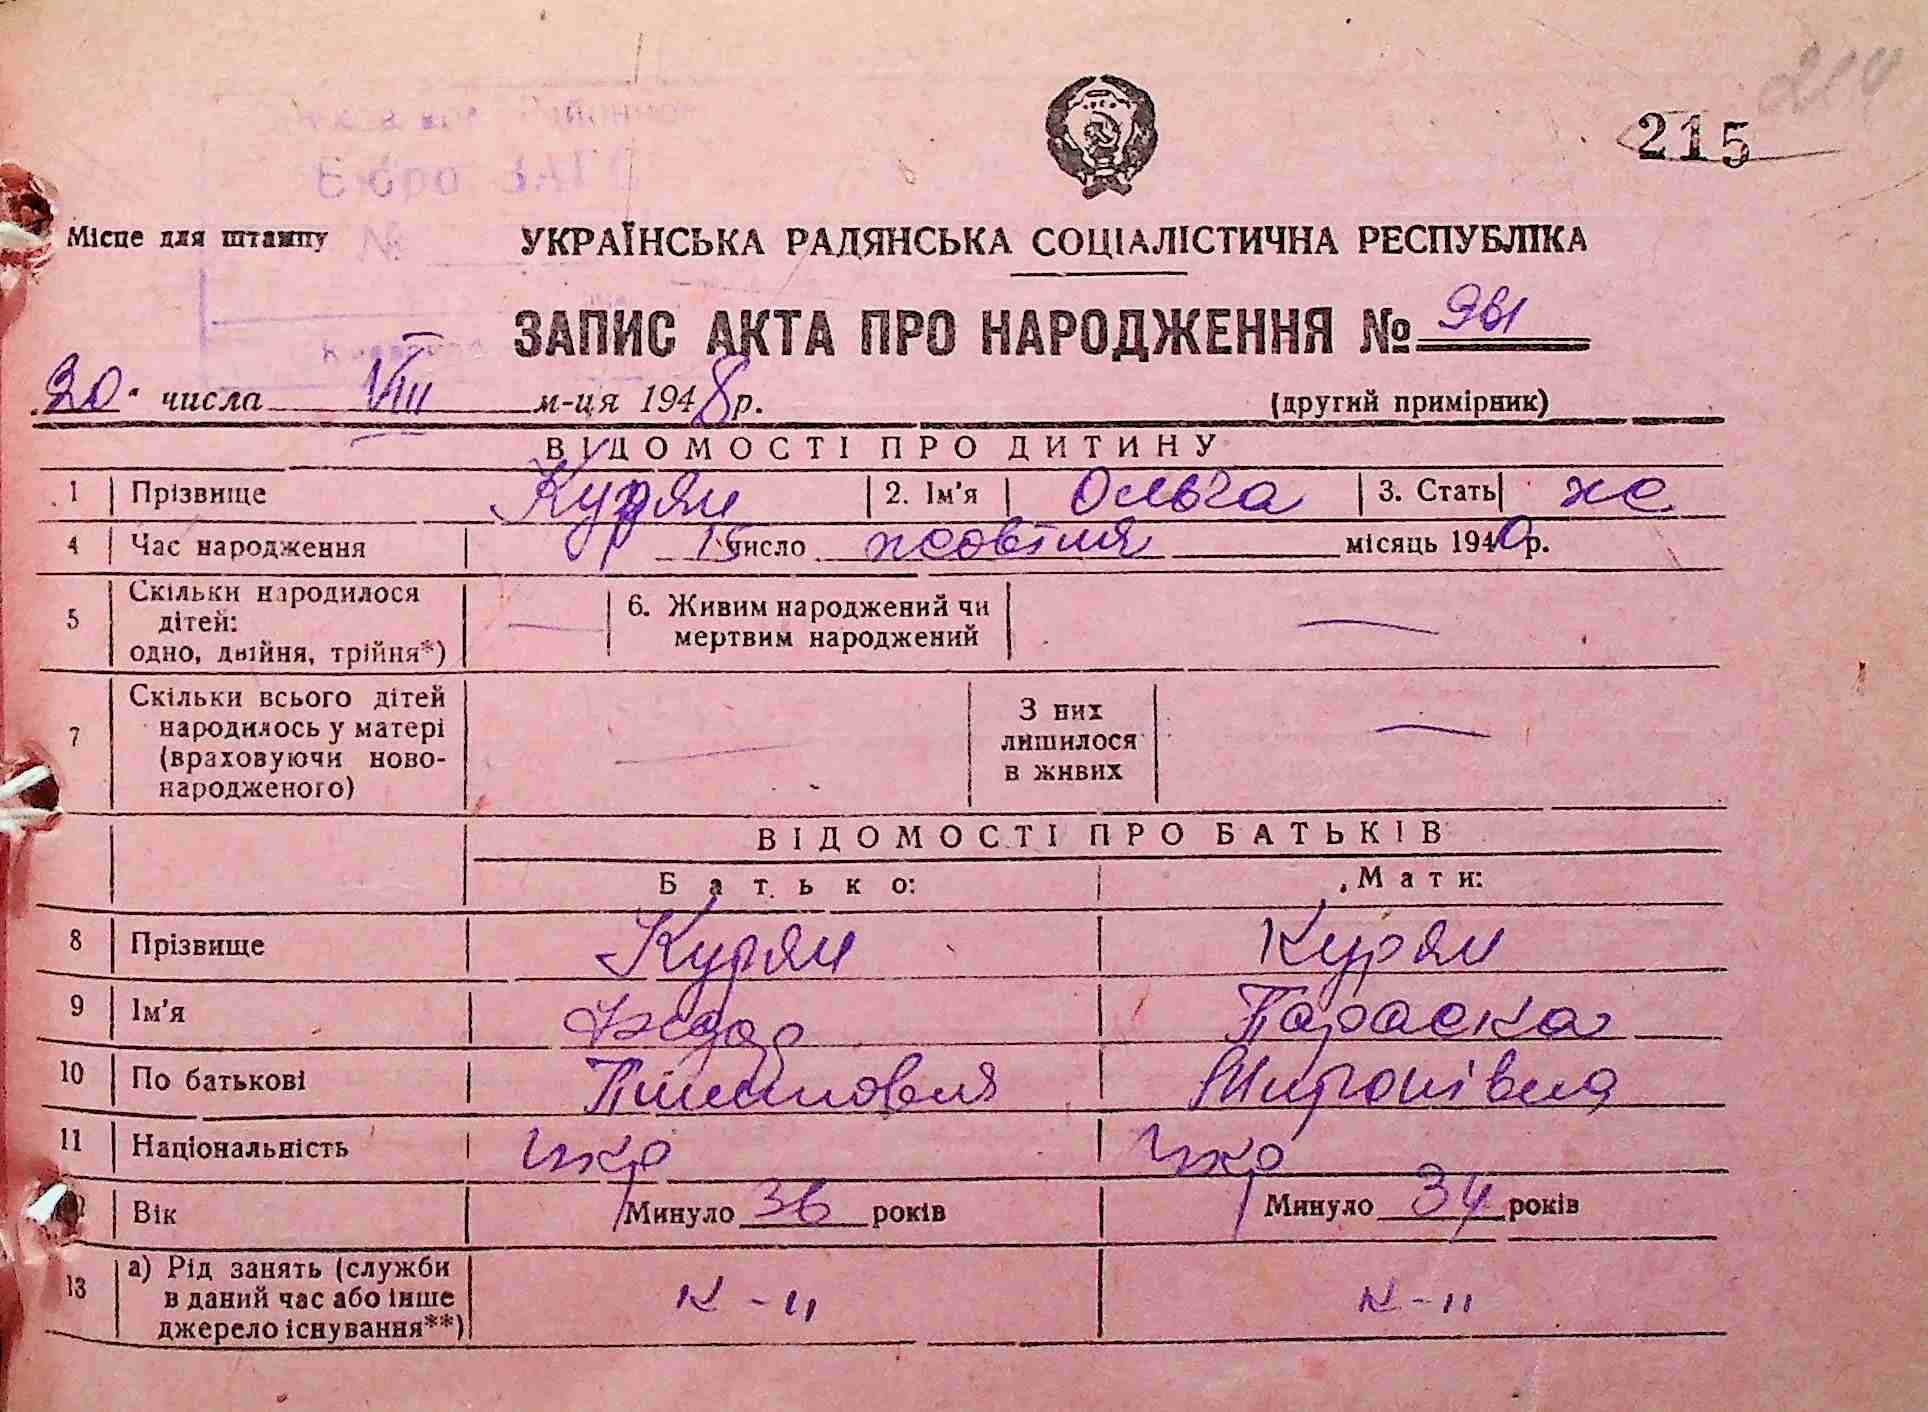 214
215
Бюро ЗАГС
Місце для штампу
№
УКРАЇНСЬКА РАДЯНСЬКА СОЦІАЛІСТИЧНА РЕСПУБЛІКА
ЗАПИС АКТА ПРО НАРОДЖЕННЯ № 961
30 числа VIII м-ця 1948 р. (другий примірник)
ВІДОМОСТІ ПРО ДИТИНУ
1 Прізвище Курян 2. Ім'я Ольга 3. Стать же
4 Час народження 15 число жовтня місяць 1940 р.
5 Скільки народилося дітей: одно, двійня, трійня*) — 6. Живим народжений чи мертвим народжений —
7 Скільки всього дітей народилось у матері (враховуючи новонародженого) — З них лишилося в живих —
ВІДОМОСТІ ПРО БАТЬКІВ
Батько: Мати:
8 Прізвище Курян Курян
9 Ім'я Параска
10 По батькові Миронівна
11 Національність укр укр
12 Вік Минуло 36 років Минуло 34 років
13 а) Рід занять (служби в даний час або інше джерело існування**) к-ц к-ц